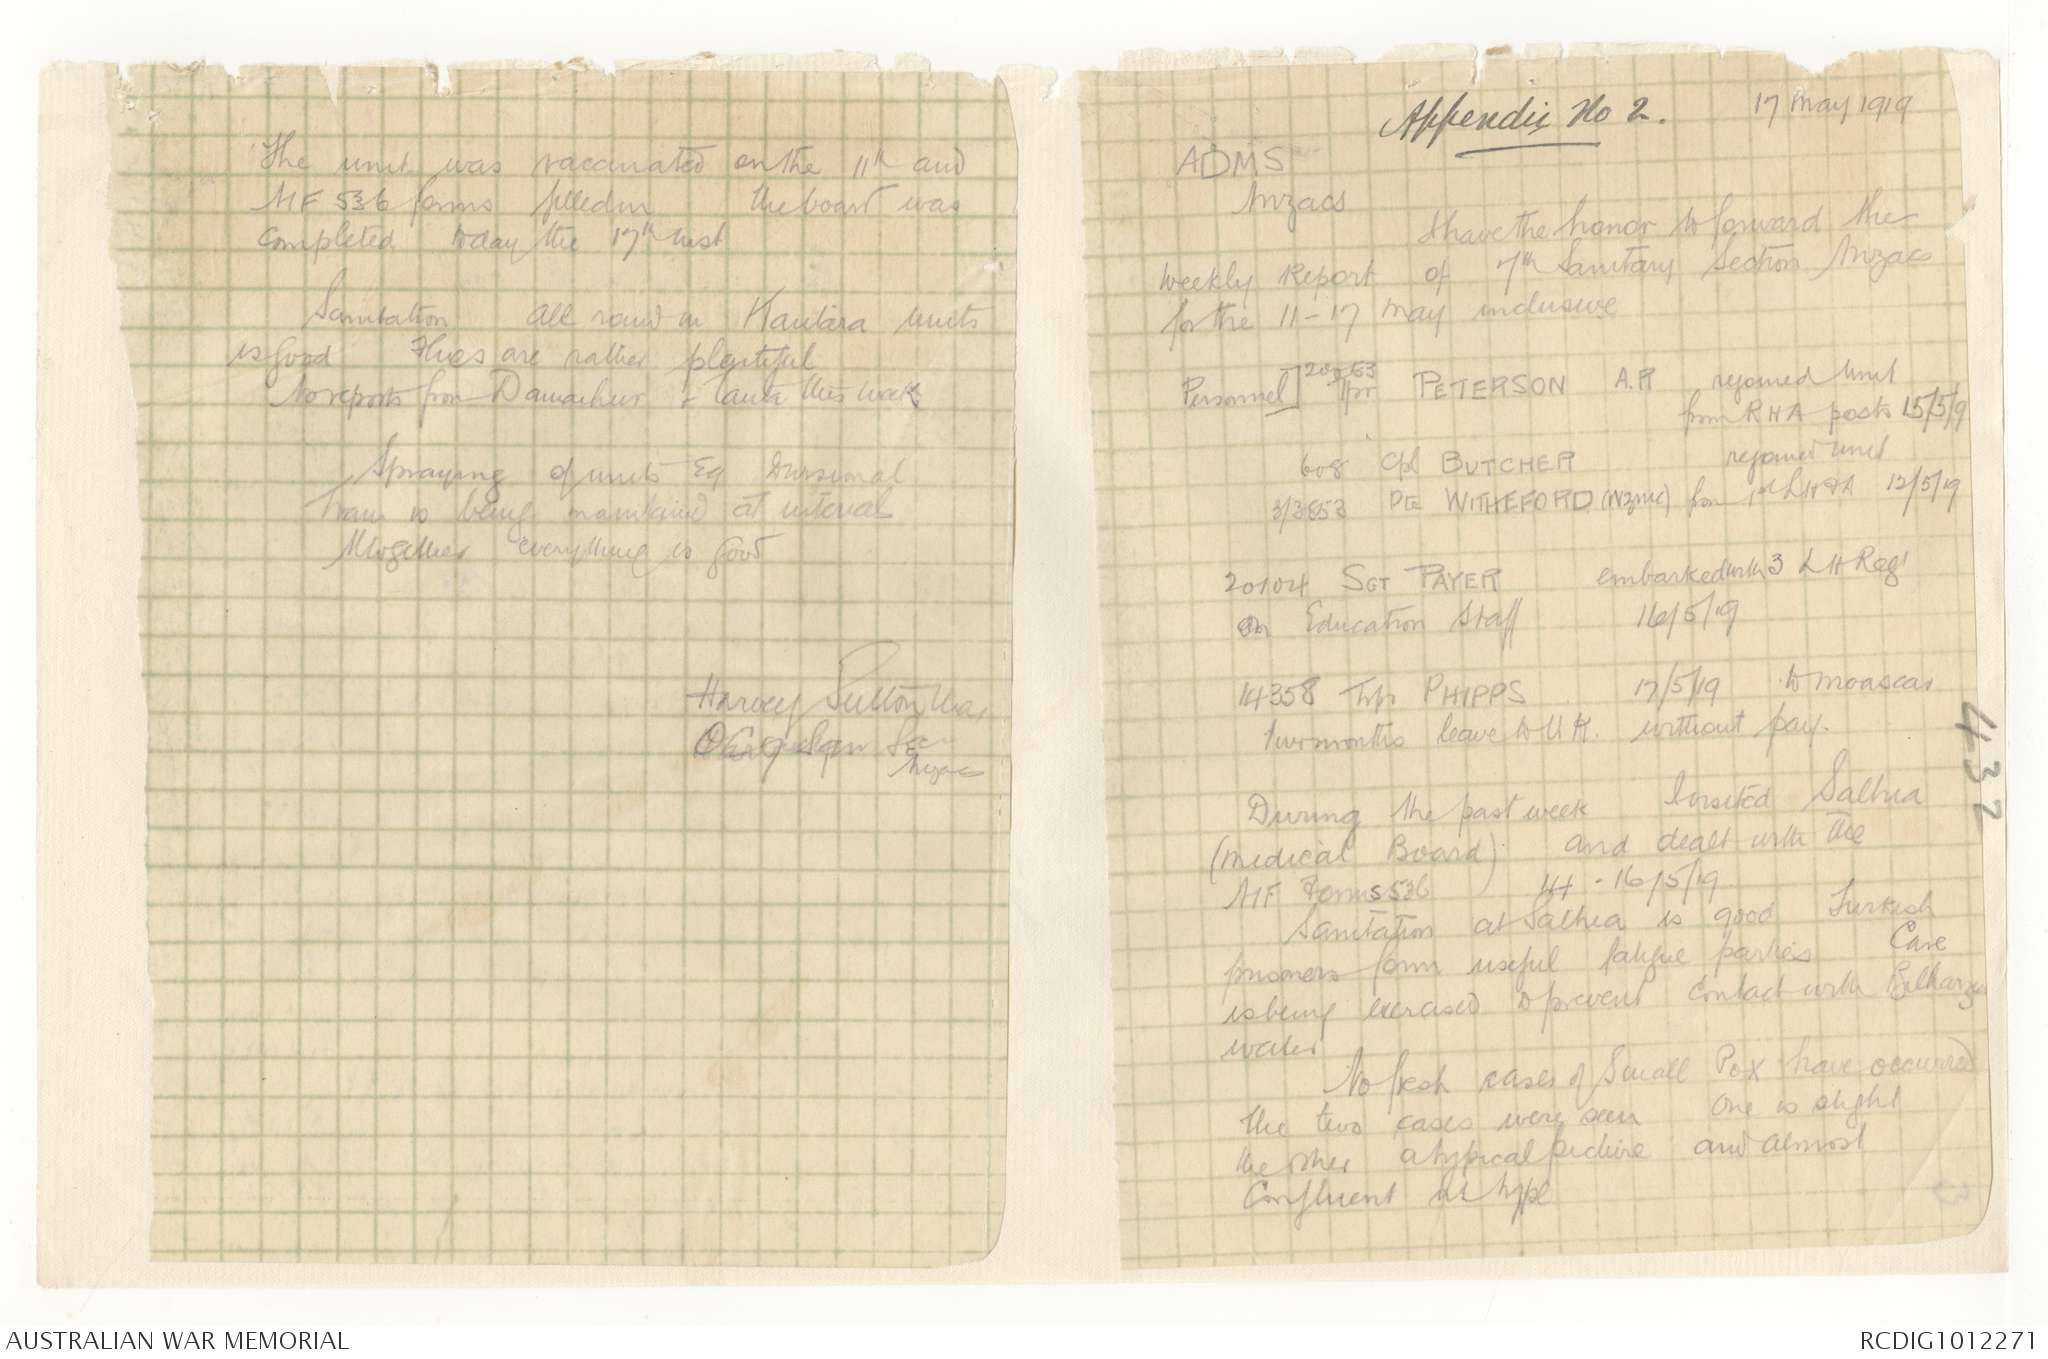 The unit was vaccinated on the 11th and
AIF 536 forms filled in the board was
completed today the 17th inst
Sanitation all round in Kantara units
is good Flies are rather plentiful
No reports from Damanhur & Tanta this week
Spraying of units Eq Divisional
Train is being maintained at interval
Altogether everything is good
Harvey Sutton Maj
OC 7 San Sec
Anzacs
Appendix No 2. 17 May 1919
ADMS
Anzacs
I have the honor to forward the
weekly Report of 7th Sanitary Section Anzacs
for the 11-17 May inclusive
Personnel] Tpr PETERSON A.R rejoined unit
from RHA posts 15/5/19
608 Cpl BUTCHER rejoined unit
3/3853 Pte WITHEFORD (NZMC) from 1st LHFA 12/5/19
20104 SGT PAYER embarked with 3 LH Regt
on Education Staff 16/5/19
14358 Tpr PHIPPS 17/5/19 to Moascar
two months leave to U K. without pay.
During the past week I visited Salhia
(Medical Board) and dealt with the
AIF Forms 536 14 - 16/5/19
Sanitation at Salhia is good Turkish
prisoners form useful fatigue parties Care
is being exercised to prevent contact with Bilharzia
water
No fresh cases of Small Pox have occurred
the two cases were seen One is slight
the other a typical picture and almost
Confluent in type
432
AUSTRALIAN WAR MEMORIAL
RCDIG1012271